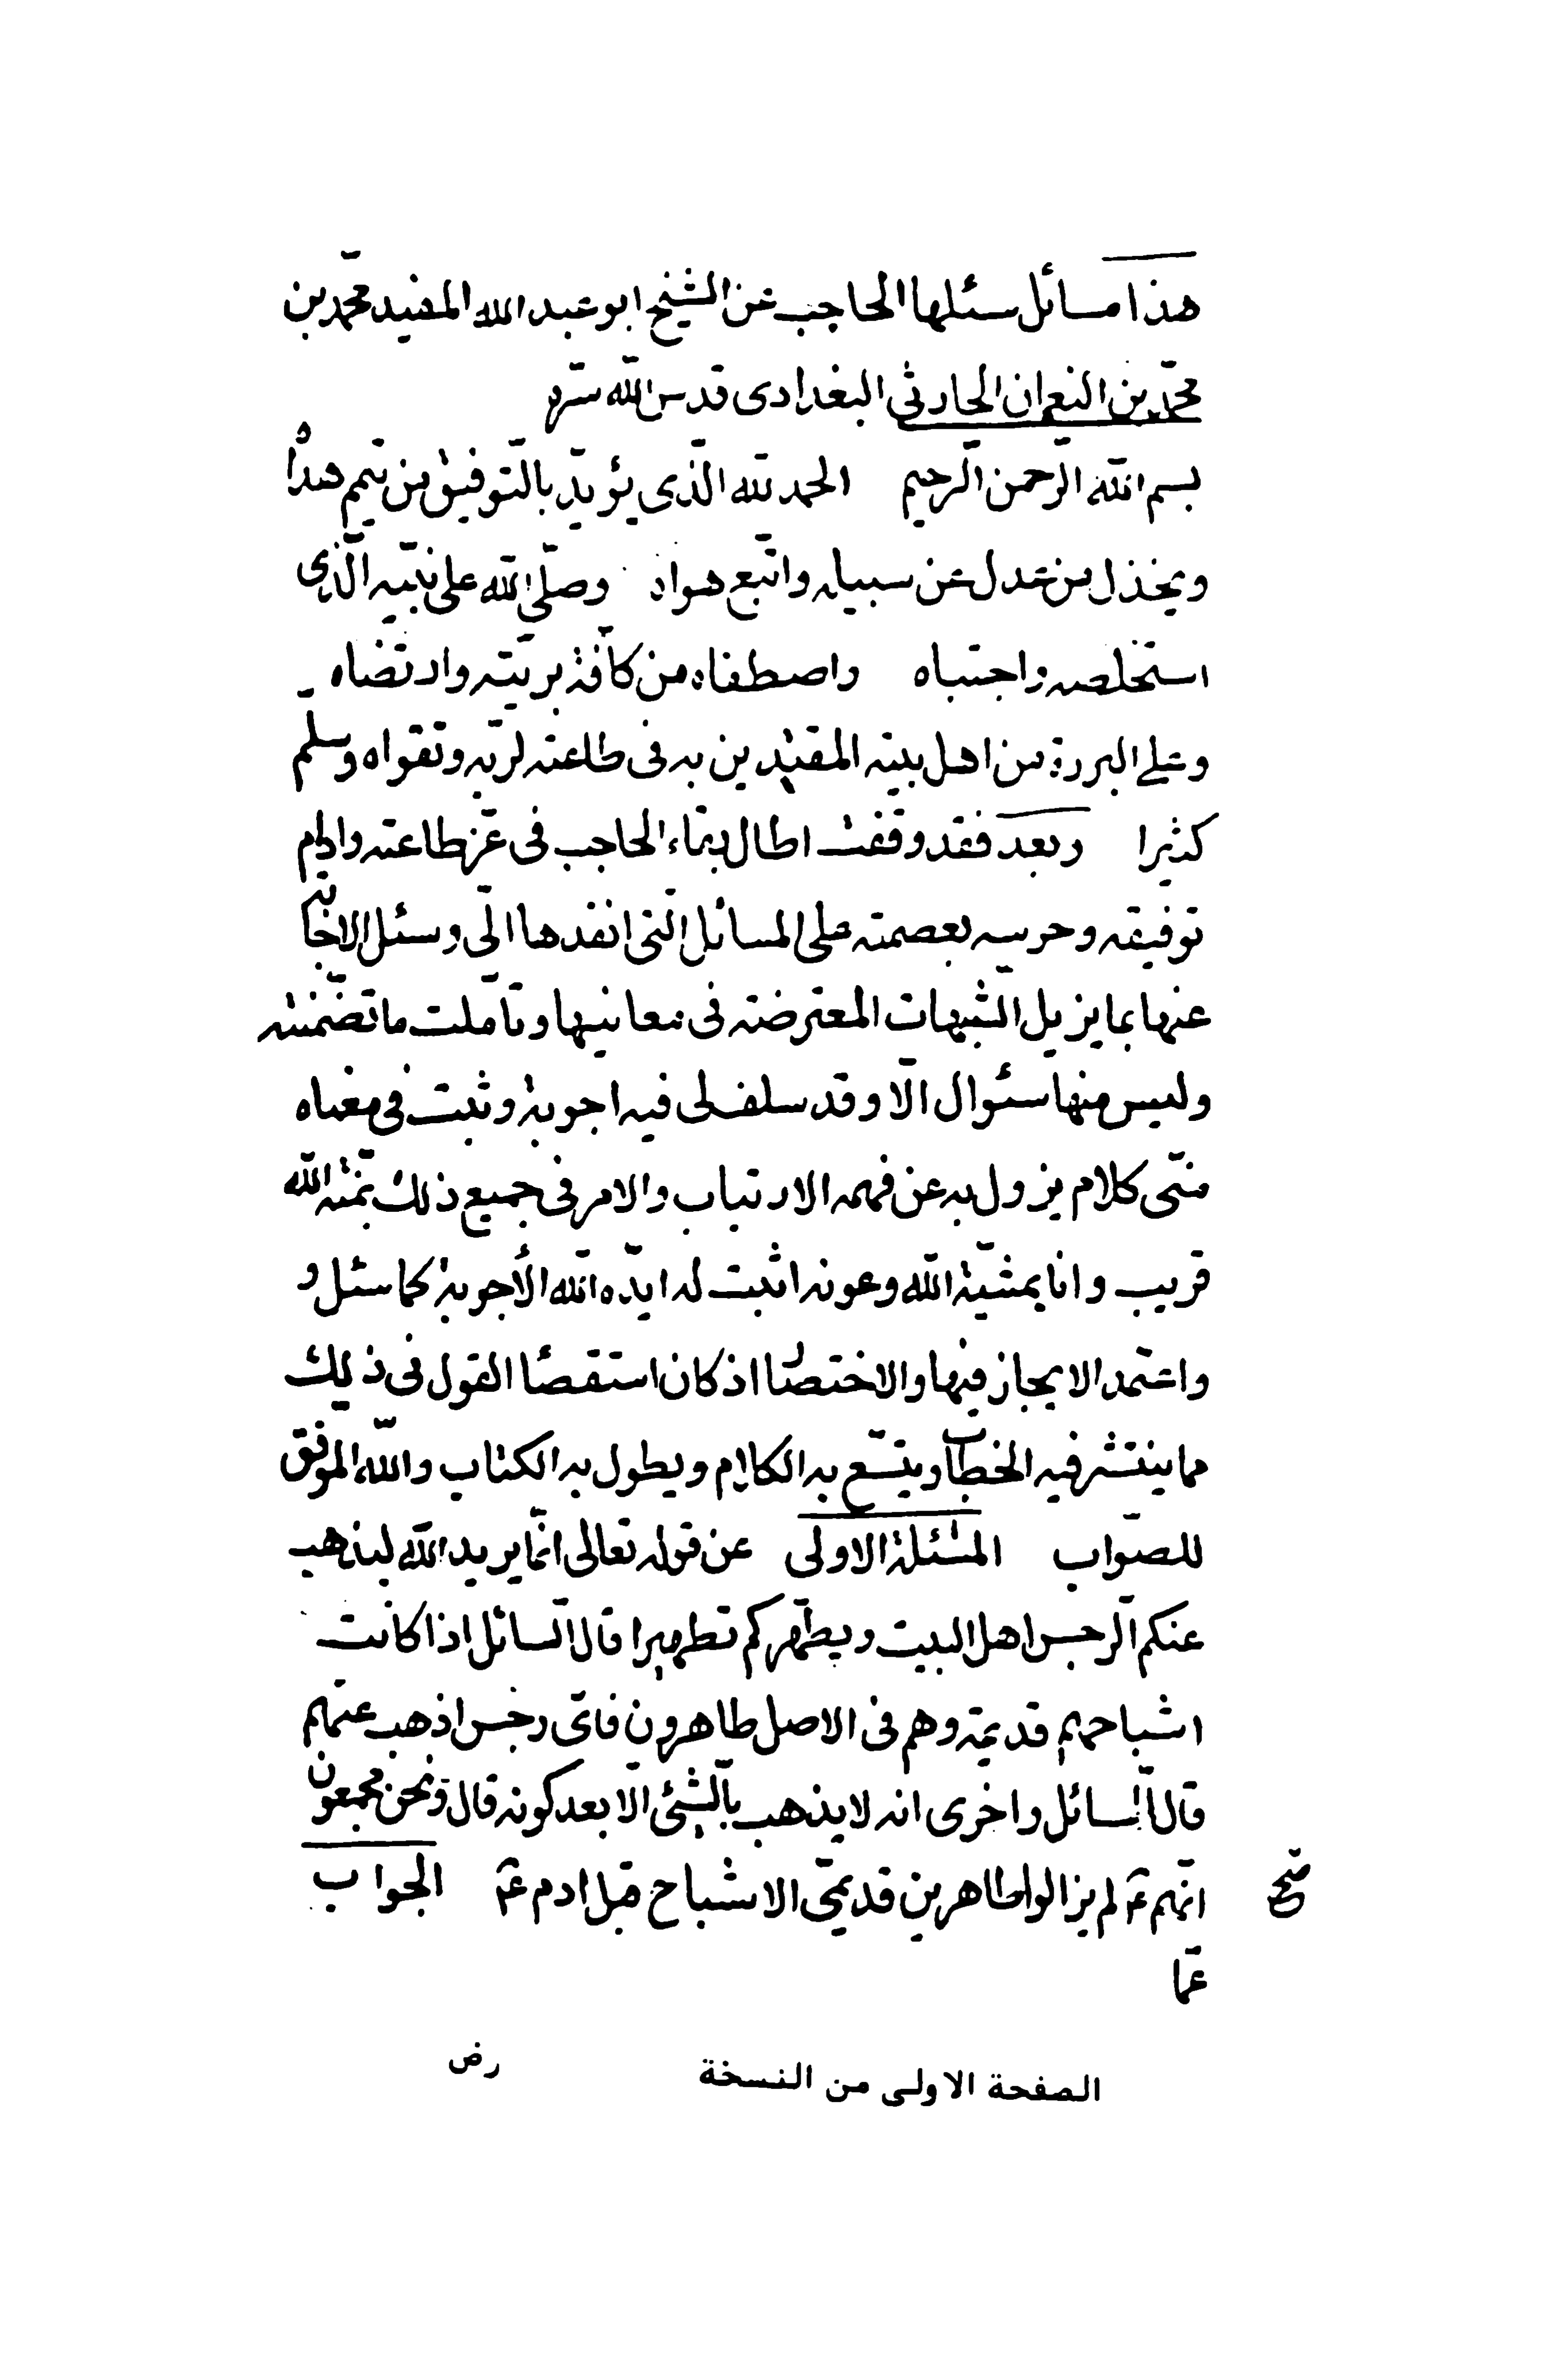 هذا مسائل سئلها الحاجب عن الشيخ ابو عبد الله المفيد محمد بن
محمد بن النعمان الحارثي البغدادى قدس الله سره
بسم الله الرحمن الرحيم الحمد لله الذى يؤيد بالتوفيق من تيمم هداه
ويخذل من عدل عن سبيله واتبع هواه وصلى الله على نبيه الذى
استخلصه واجتباه واصطفاه من كافة بريته وارتضاه
وعلى البررة من اهل بيته المقتدين به فى طاعته لربه وتقواه وسلم
كثيرا وبعد فقد وقفت اطال بقاء الحاجب فى عز طاعته وادام
توفيقه وحرسه بعصمته على المسائل التى انفذها الى وسئل الاجابة
عنها بما يزيل الشبهات المعترضة فى معانيها وتاملت ما تضمنته
وليس منها سئوال الا وقد سلف لى فيه اجوبة وثبت فى معناه
منى كلام يزول به عن فهمه الارتياب والامر فى جميع ذلك بمنة الله
قريب وانا بمشية الله وعونه اثبت له ايده الله الأجوبة كما سئل و
واعتمد الايجاز فيها والاختصار اذ كان استقصا القول فى ذلك
مما ينتشر فيه الخطاب ويتسع به الكلام ويطول به الكتاب والله الموفق
للصواب المسئلة الاولى عن قوله تعالى انما يريد الله ليذهب
عنكم الرجس اهل البيت ويطهركم تطهيرا قال السائل اذا كانت
اشباحهم قديمة وهم فى الاصل طاهرون فاى رجس اذهب عنهم
قال السائل واخرى انه لا يذهب بالشئ الا بعد كونه قال ونحن مجمعون
انهم ع لم يزالوا طاهرين قديمى الاشباح قبل ادم ع الجواب
عما
الصفحة الاولى من النسخة رض